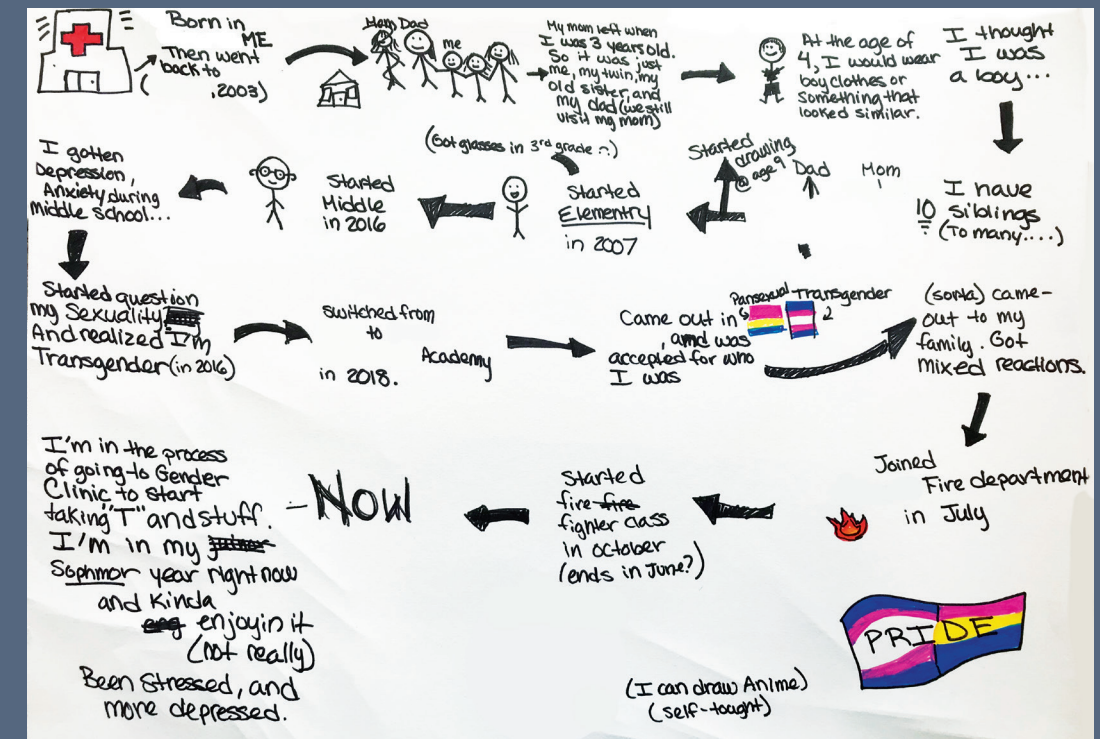 Born in
ME
Then went
back to
( ,2003)
Mom Dad
me
My mom left when
I was 3 years old.
So it was just
me, my twin, my
old sister, and
my dad (we still
visit my mom)
At the age of
4, I would wear
boy clothes or
something that
looked similar.
I thought
I was
a boy...
I have
10 siblings
(To many....)
Mom
Dad
Started
drawing
@ age 9
Started
Elementry
in 2007
(Got glasses in 3rd grade :))
Started
Middle
in 2016
I gotten
Depression,
Anxiety during
middle school...
Started question
my Sexuality
And realized I'm
Transgender (in 2016)
switched from
to
Academy
in 2018.
Pansexual Transgender
Came out in
, and was
accepted for who
I was
(sorta) came-
out to my
family. Got
mixed reactions.
Joined
Fire department
in July
Started
fire fire
fighter class
in october
(ends in June?)
Now
I'm in the process
of going to Gender
Clinic to start
taking "T" and stuff.
I'm in my
Sophmor year right now
and Kinda
enjoyin it
(not really)
Been Stressed, and
more depressed.
PRIDE
(I can draw Anime)
(self-tought)